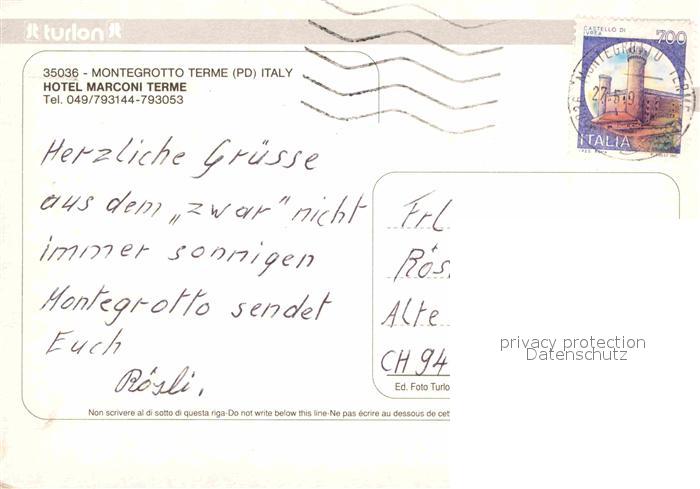 turlon
CASTELLO DI IVREA
700
MONTEGROTTO TERME
ITALIA
35036 - MONTEGROTTO TERME (PD) ITALY
HOTEL MARCONI TERME
Tel. 049/793144-793053
Herzliche Grüsse
aus dem „zwar" nicht
immer sonnigen
Montegrotto sendet
Euch
Rösli.
Frl
Rös
Alte
CH 94
privacy protection
Datenschutz
Ed. Foto Turlo
Non scrivere al di sotto di questa riga-Do not write below this line-Ne pas écrire au dessous de cett